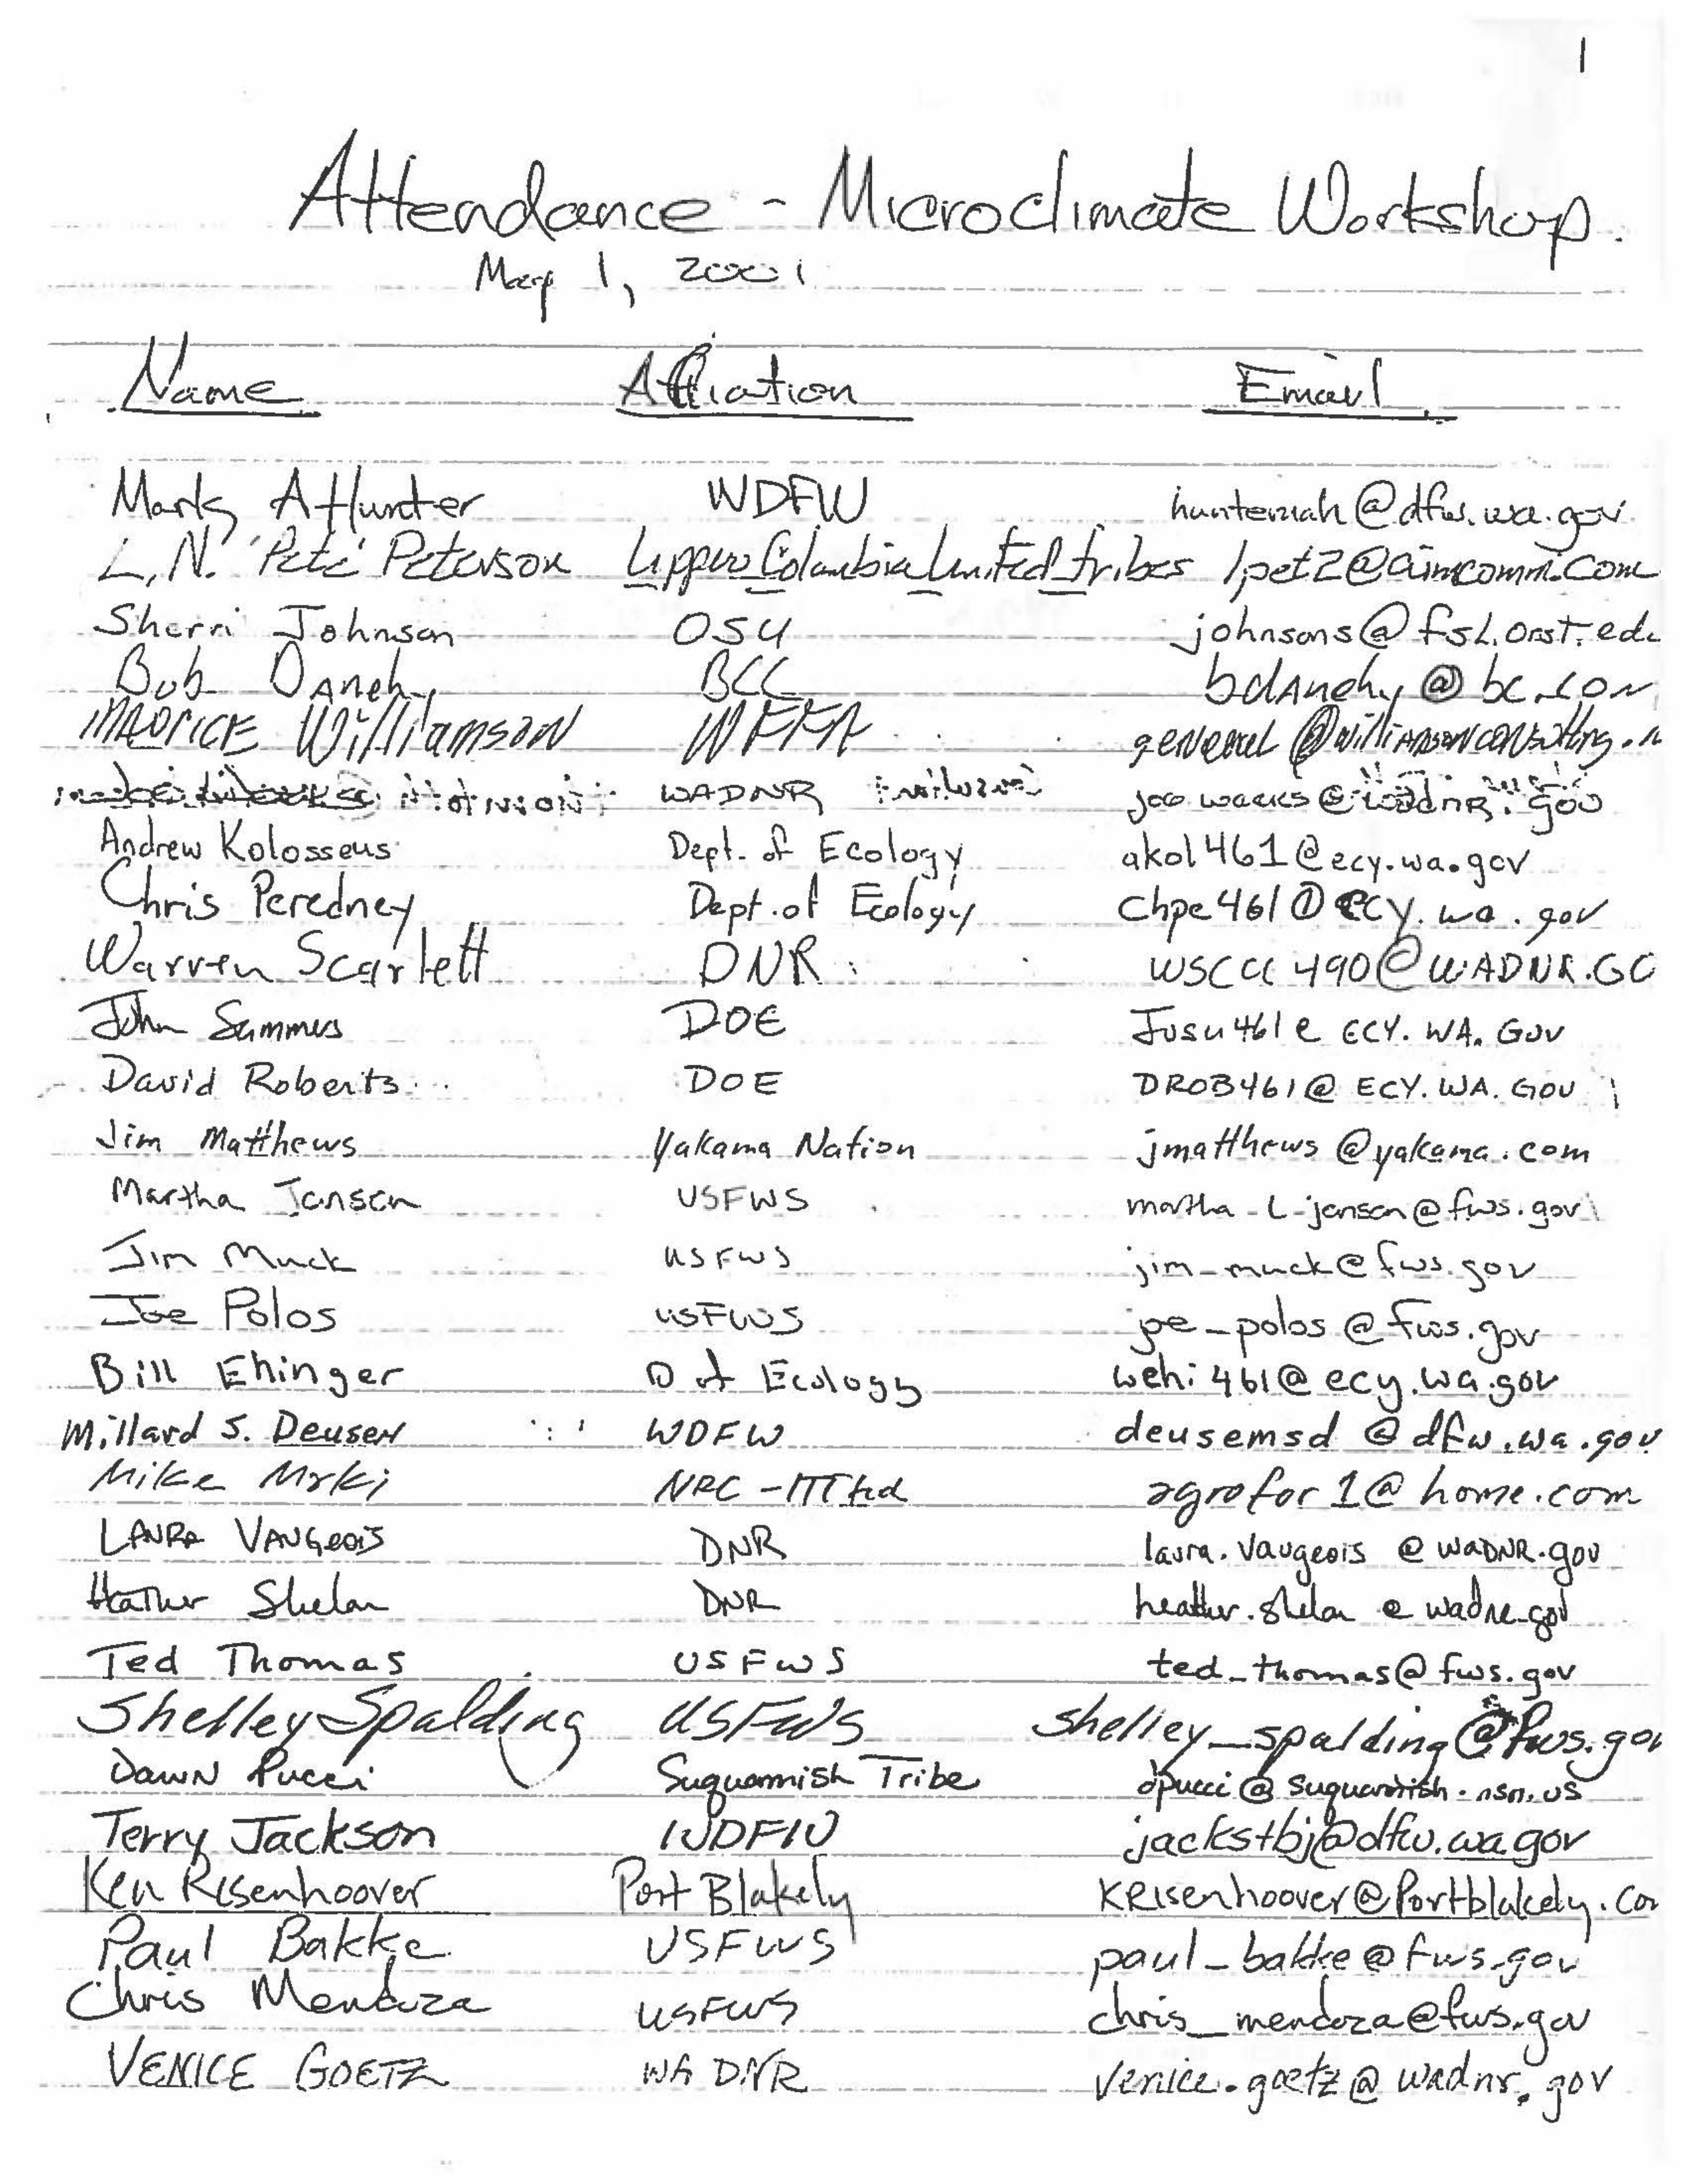 1
Attendance - Microclimate Workshop.
May 1, 2001
Name Affiation Email
Mark A Hunter WDFW huntemah@dfw.wa.gov
L.N. "Pete" Peterson Upper Columbia United Tribes lpetz@aimcomm.com
Sherri Johnson OSU johnsons@fsl.orst.edu
Bob Danehy BCC bdanehy@bc.com
Maurice Williamson WFFA general@williamsonconsulting.n
WADNR @wadnr.gov
Andrew Kolosseus Dept. of Ecology akol461@ecy.wa.gov
Chris Peredney Dept. of Ecology Chpe461@ecy.wa.gov
Warren Scarlett DNR WSCA490@WADNR.GO
John Summers DOE Josu461@ECY.WA.Gov
David Roberts DOE DROB461@ECY.WA.GOV
Jim Matthews Yakama Nation jmatthews@yakama.com
Martha Jensen USFWS martha_L_jensen@fws.gov
Jim Muck USFWS jim_muck@fws.gov
Joe Polos USFWS joe_polos@fws.gov
Bill Ehinger D of Ecology wehi461@ecy.wa.gov
Millard S. Deusen WDFW deusemsd@dfw.wa.gov
Mike Mrki NRC - agrofor1@home.com
LAURA VAUGEOIS DNR laura.vaugeois@WADNR.gov
Heather Shelan DNR heather.shelan@wadnr.gov
Ted Thomas USFWS ted_thomas@fws.gov
Shelley Spalding USFWS shelley_spalding@fws.gov
Dawn Pucci Suquamish Tribe dpucci@Suquamish.nsn.us
Terry Jackson WDFW jackstbj@dfw.wa.gov
Ken Risenhoover Port Blakely KRisenhoover@Portblakely.Com
Paul Bakke USFWS paul_bakke@fws.gov
Chris Mendoza USFWS chris_mendoza@fws.gov
VENICE GOETZ WA DNR Venice.goetz@wadnr.gov